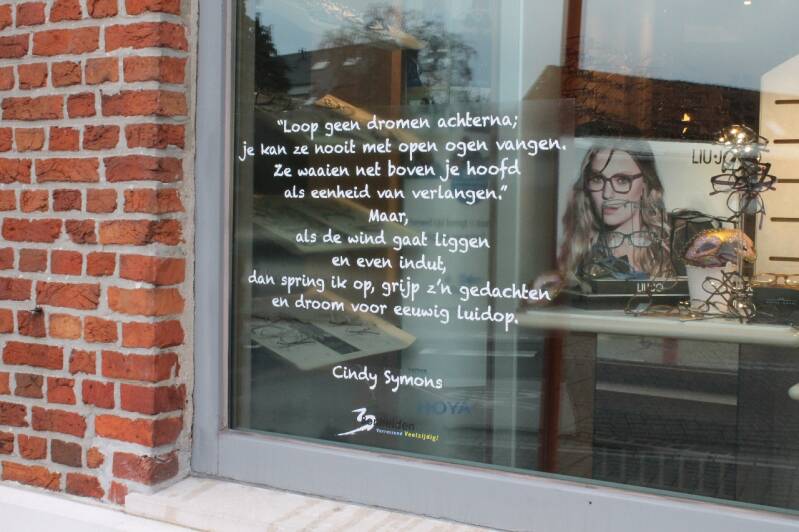 "Loop geen dromen achterna;
je kan ze nooit met open ogen vangen.
Ze waaien net boven je hoofd
als eenheid van verlangen."
Maar,
als de wind gaat liggen
en even indut,
dan spring ik op, grijp z'n gedachten
en droom voor eeuwig luidop.
Cindy Symons
Bonheiden
Verrassend Veelzijdig!
HOYA
LIU·JO
LIU·JO